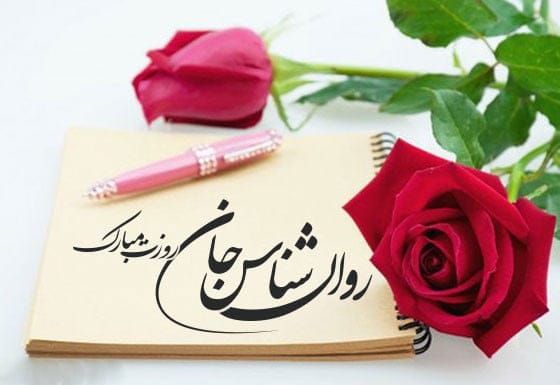 روان‌شناس جان
روزت مبارک